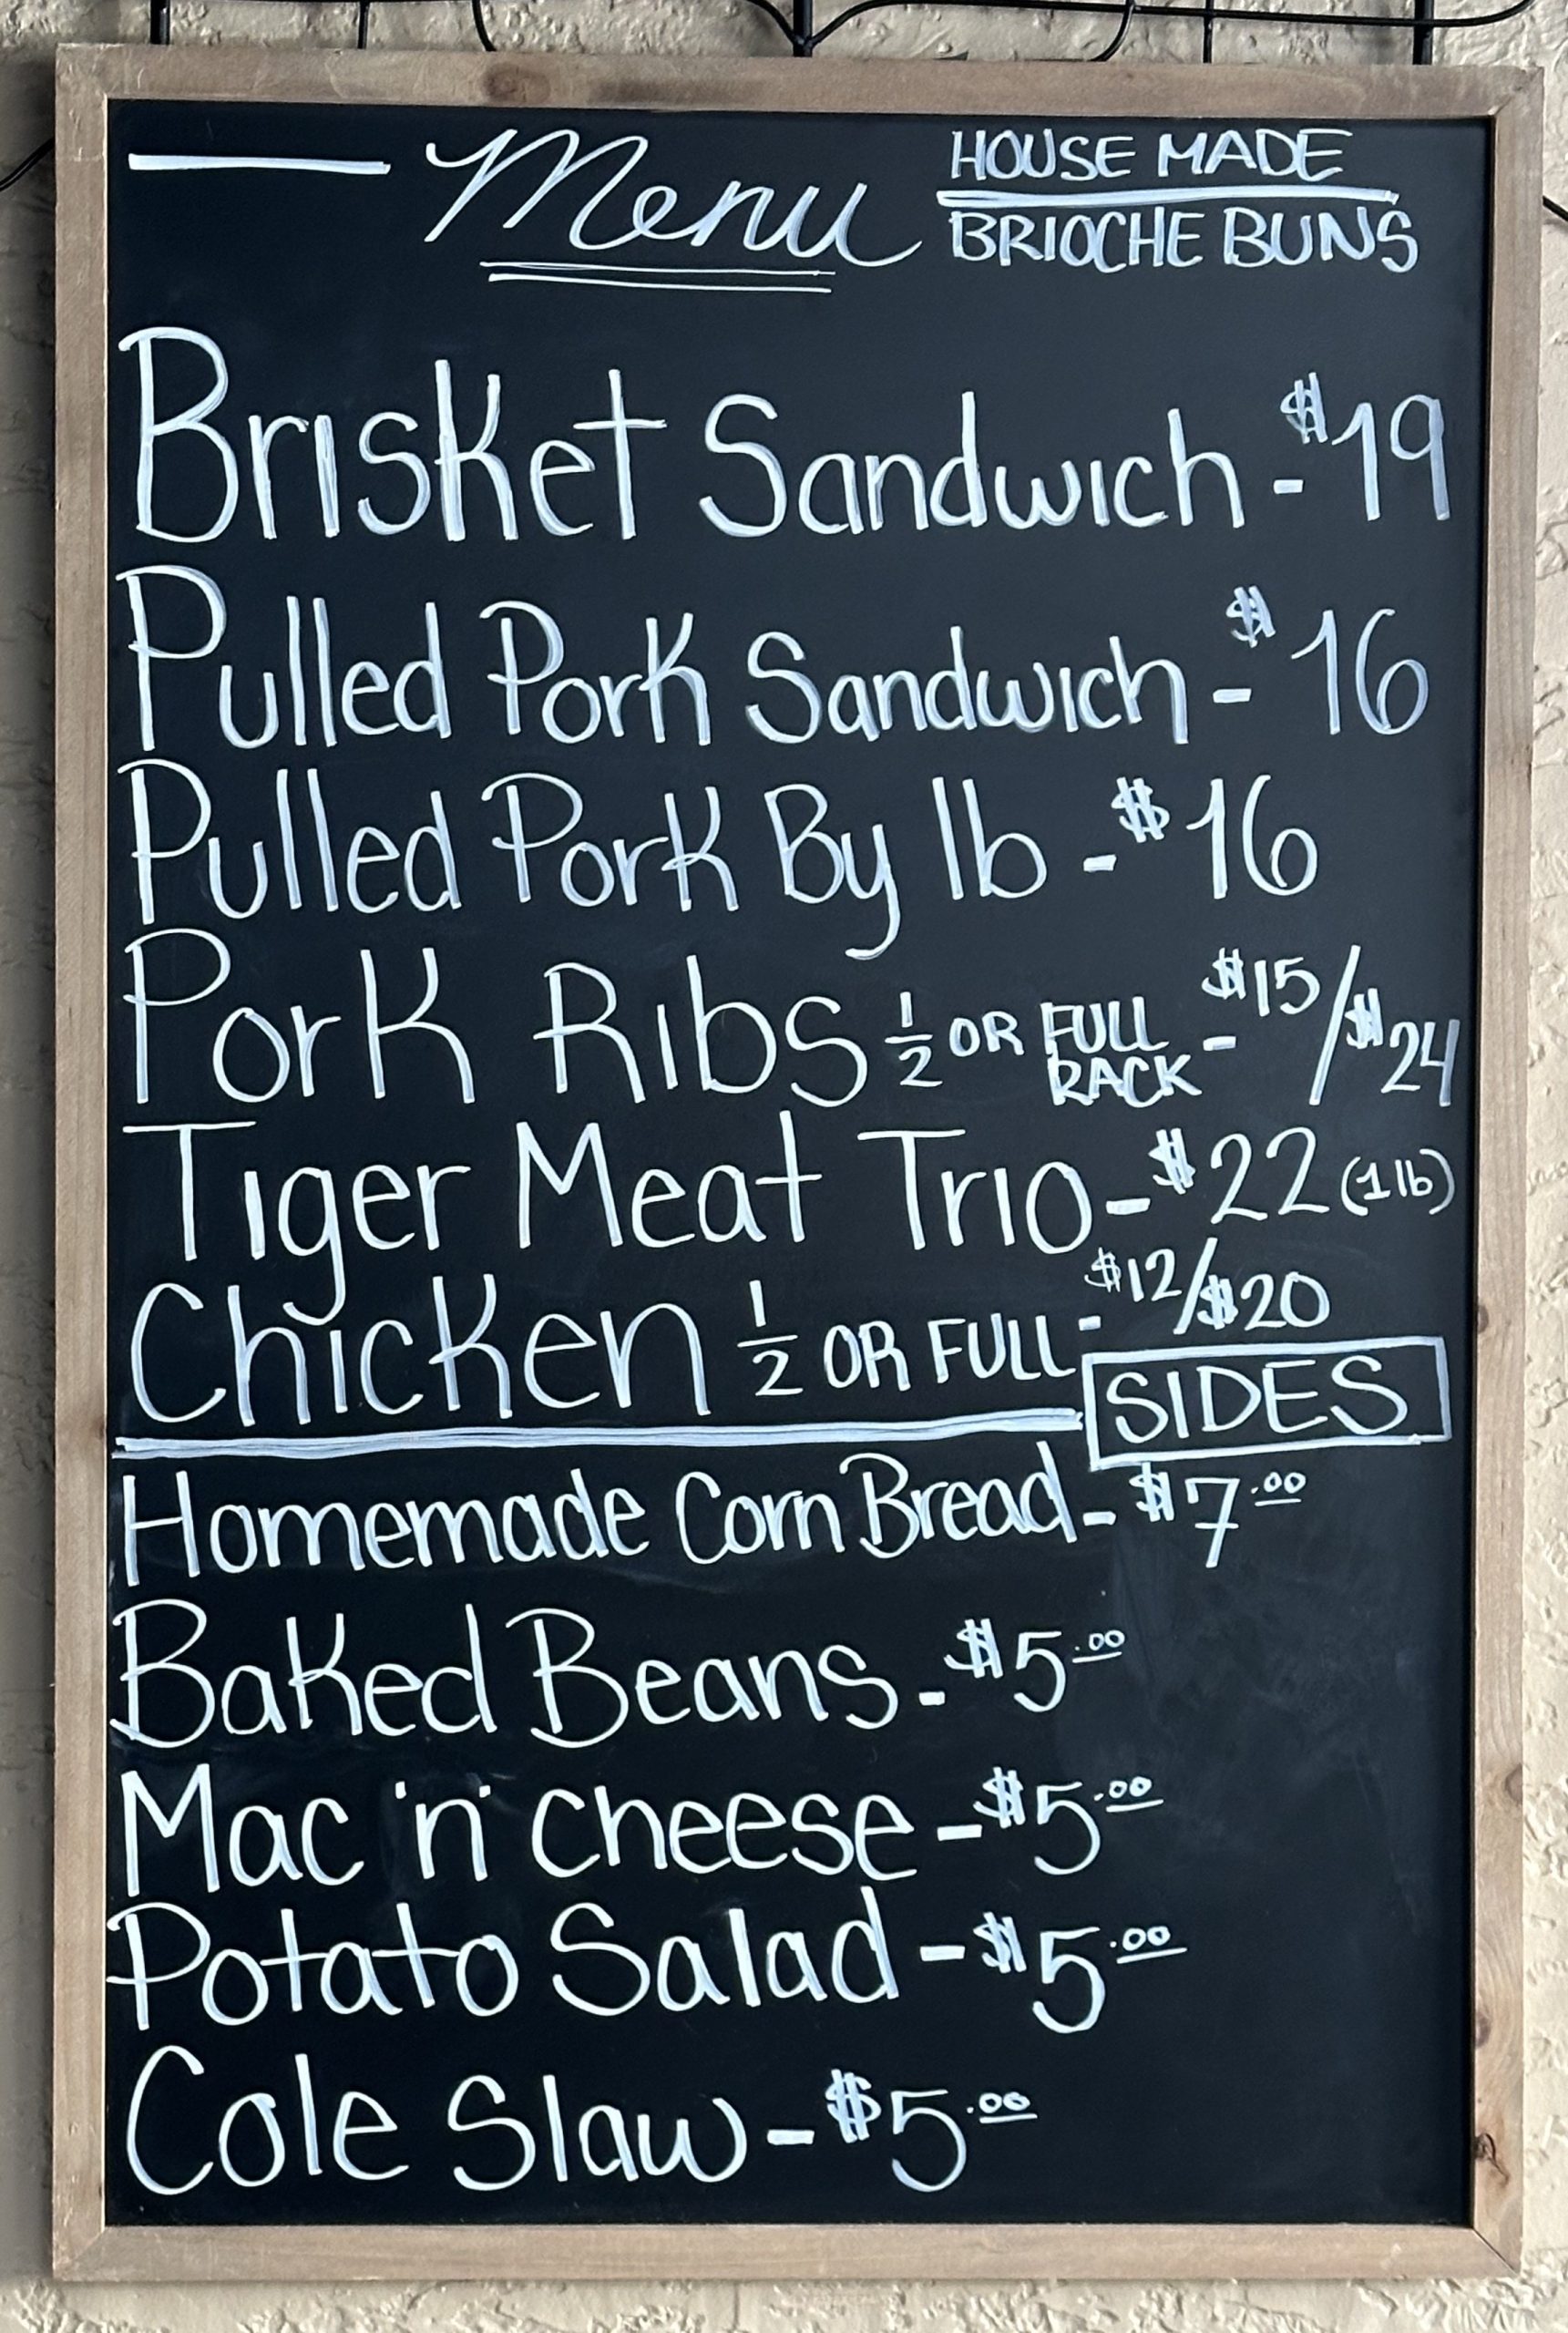 Menu
HOUSE MADE
BRIOCHE BUNS
Brisket Sandwich - $19
Pulled Pork Sandwich - $16
Pulled Pork By lb - $16
Pork Ribs 1/2 OR FULL RACK - $15/$24
Tiger Meat Trio - $22 (1 lb)
Chicken 1/2 OR FULL - $12/$20
SIDES
Homemade Corn Bread - $7.00
Baked Beans - $5.00
Mac 'n' cheese - $5.00
Potato Salad - $5.00
Cole Slaw - $5.00